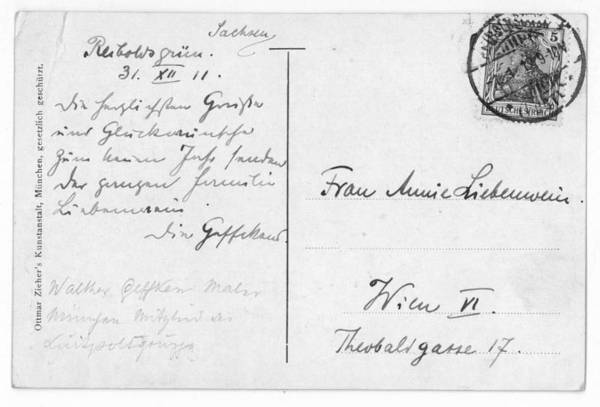 Sachsen
Reiboldsgrün.
31. XII 11.
Die herzlichsten Grüße
und Glückwünsche
zum neuen Jahr senden
der ganzen Familie
Liebenwein
die Geffckens.
Walther Geffken Maler
München Mitglied der
Luitpoldgruppe
Ottmar Zieher's Kunstanstalt, München, gesetzlich geschützt.
5
DEUTSCHES REICH
Frau Annie Liebenwein.
Wien VI.
Theobaldgasse 17.